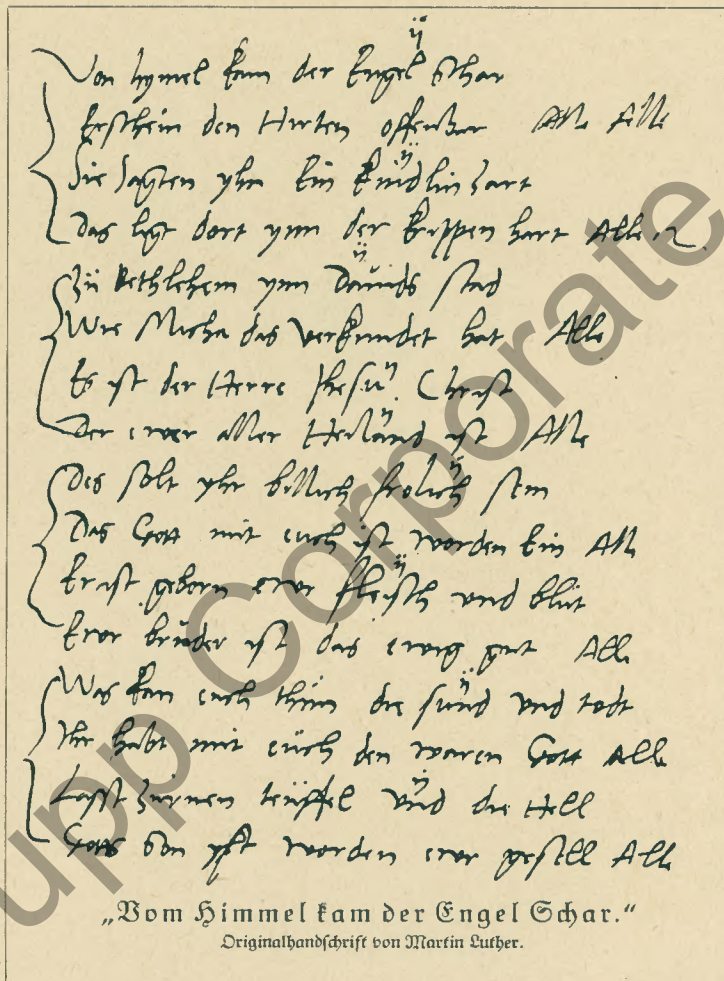 ÿ
Von hymel kam der Engel schar
Erschein den Hirten offenbar Alle Alle
Sie sagten yhn Ein kindlin zart
Das ligt dort ynn der krippen hart Alle
Zu Bethlehem ynn Dauids stad
Wie Micha das verkundet hat Alle
Es ist der Herre Jhesus Christ
Der ewer aller Heiland ist Alle
Des solt yhr billich frolich sein
Das Gott mit euch ist worden Ein All
Er ist geborn ewr fleisch vnd blut
Ewr bruder ist das ewig gut All
Was kan euch thun die sund vnd todt
Ihr habt mit euch den waren Gott Alle
Lasst zurnen teuffel vnd die Hell
Gotts son yst worden ewr gesell Alle
„Vom Himmel kam der Engel Schar.“
Originalhandschrift von Martin Luther.
upp Corporate